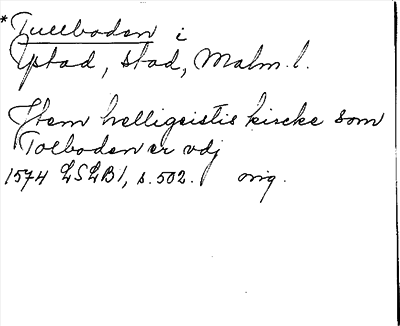 *Tullbodan i
Ystad, stad, Malm. l.
Jtem helligeistis kircke som
Tolboden er vdj
1574 LSLB1, s. 502. orig.